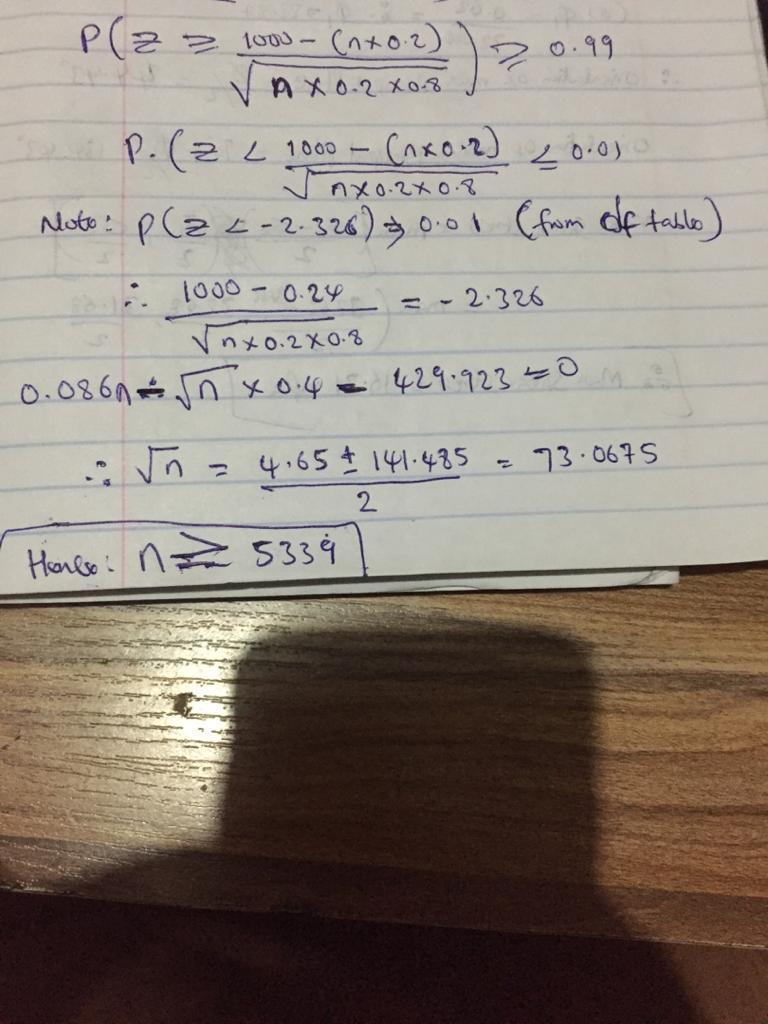 P(z ≥ (1000 - (n×0.2))/√(n×0.2×0.8)) ≥ 0.99
P.(z < (1000 - (n×0.2))/√(n×0.2×0.8) ≤ 0.01
Note: P(z < -2.326) → 0.01 (from df table)
∴ (1000 - 0.24)/√(n×0.2×0.8) = -2.326
0.086n - √n × 0.4 - 429.923 = 0
∴ √n = (4.65 ± 141.485)/2 = 73.0675
Hence: n ≥ 5339